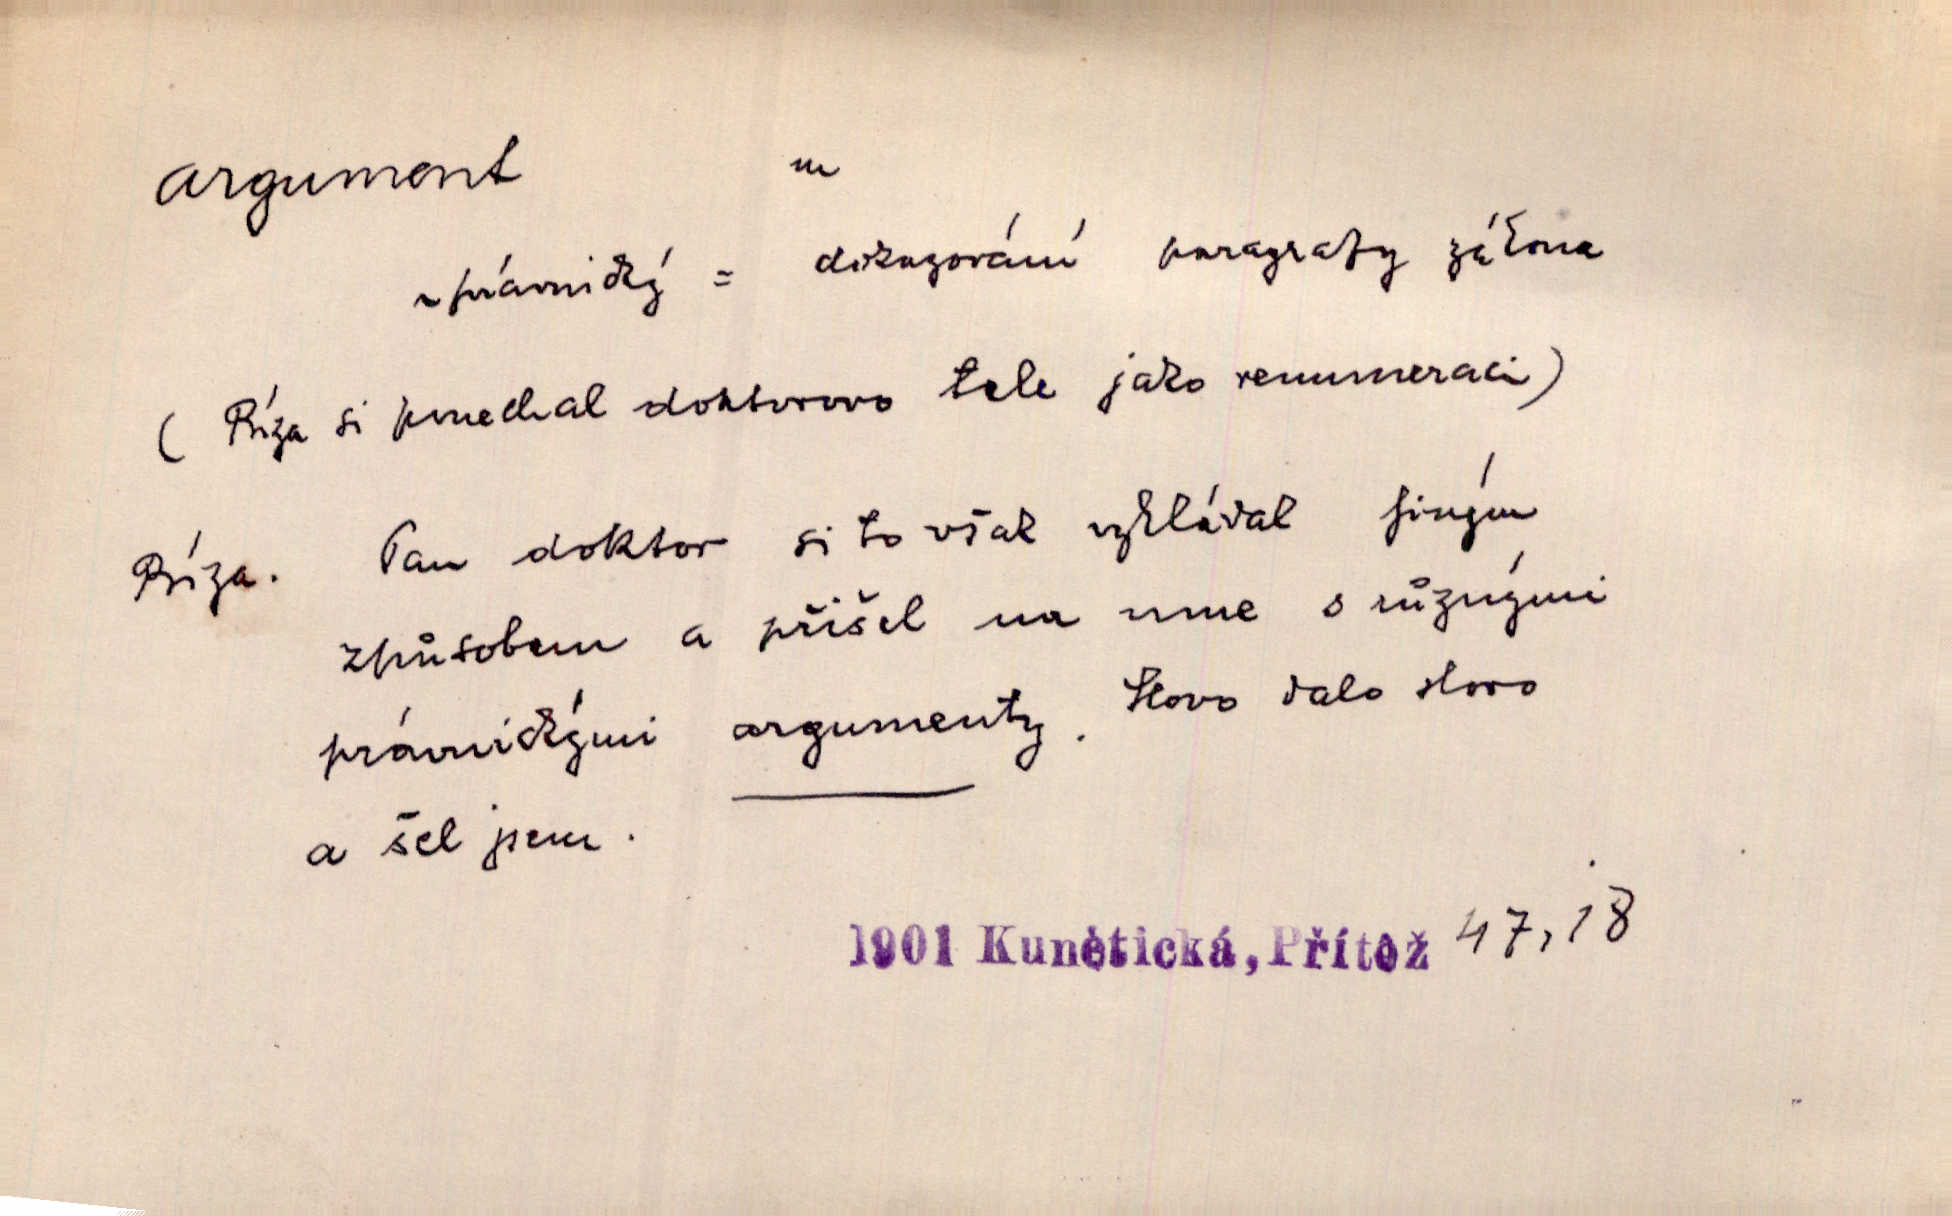 argument m
~ právnický = dokazování paragrafy zákona
( Bíza si ponechal doktorovo tele jako renumeraci)
Bíza. Pan doktor si to však vykládal jiným
způsobem a přišel na mne s různými
právnickými argumenty. Slovo dalo slovo
a šel jsem.
1901 Kunětická, Přítěž 47,18